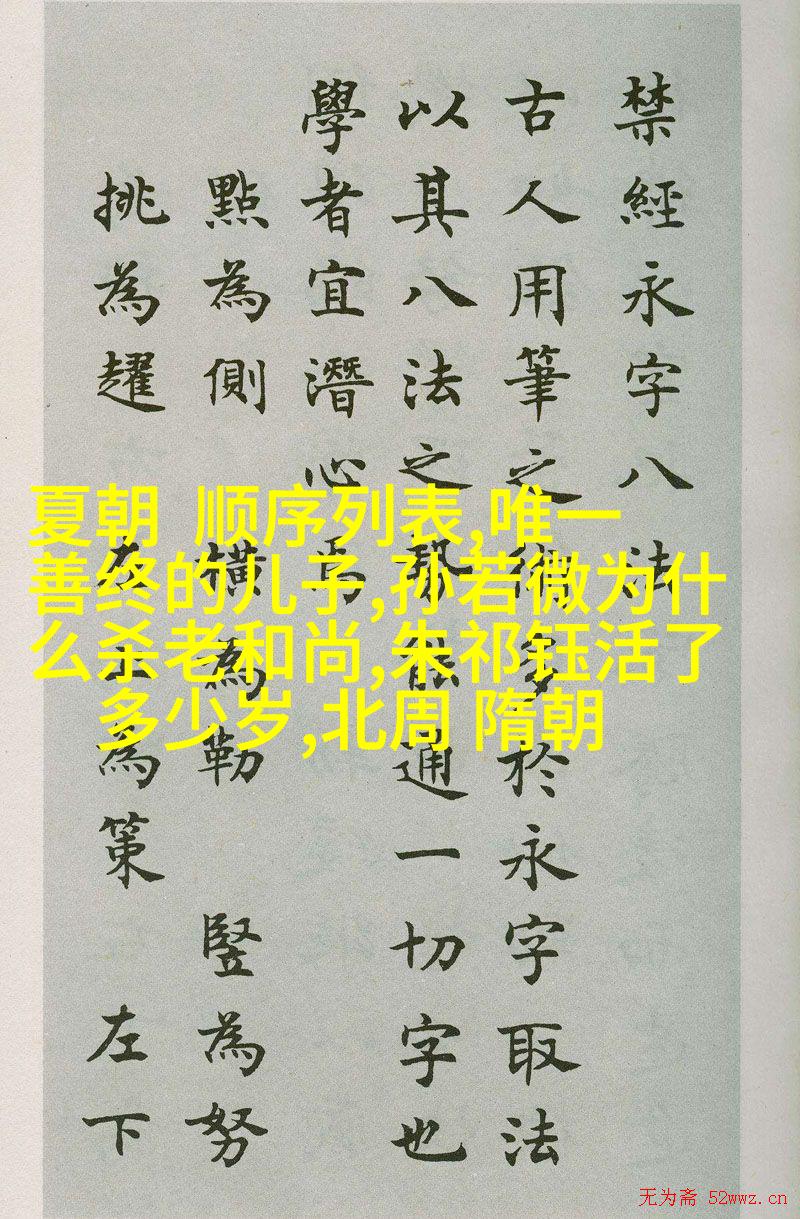 禁經永字八法
古人用筆之術多於永字取法
以其八法之勢能通一切字也
學者宜潛心焉
點為側 橫為勒 竪為努
挑為趯 左上為策 左下
夏朝 顺序列表,唯一
善终的儿子,孙若微为什
么杀老和尚,朱祁钰活了
多少岁,北周 隋朝
无为斋 52wwz.cn